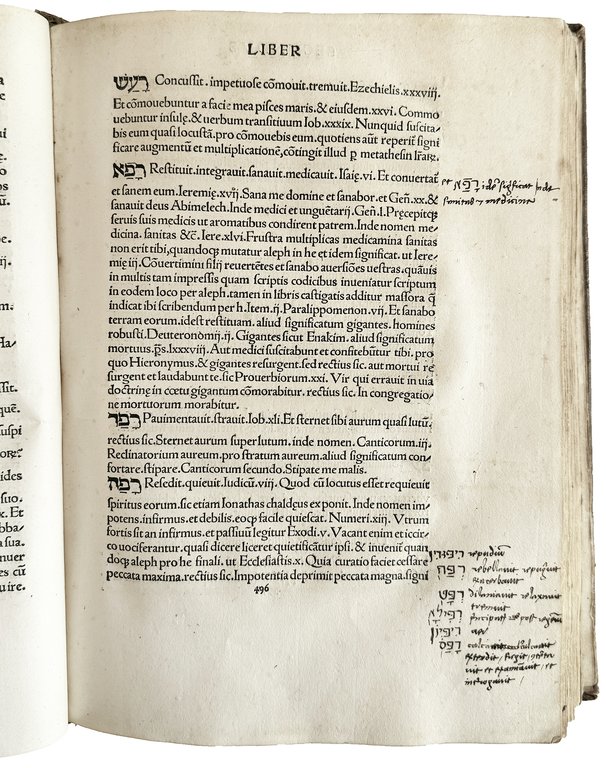 LIBER
רָעַשׁ Concussit. impetuose cōmouit. tremuit. Ezechielis. xxxviij.
Et cōmouebuntur a facie mea pisces maris. & eiusdem. xxvi. Commo
uebuntur insulę. & uerbum transitiuum Iob. xxxix. Nunquid suscita⸗
bis eum quasi locustā. pro cōmouebis eum. quotiens aūt reperit signi
ficare augmentū et multiplicationē, cōtingit illud p metathesin
רָפָא Restituit. integrauit. sanauit. medicauit. Isaię. vi. Et conuertat
et sanem eum. Ieremię. xvij. Sana me domine et sanabor. et Geñ. xx. &
sanauit deus Abimelech. Inde medici et unguētarij. Geñ. l. Pręcepitq
seruis suis medicis ut aromatibus condirent patrem. Inde nomen me⸗
dicina. sanitas &c̄. Iere. xlvi. Frustra multiplicas medicamina sanitas
non erit tibi, quandoq mutatur aleph in he et idem significat. ut Iere⸗
mię iij. Cōuertimini filij reuertētes et sanabo auersiōes uestras. quāuis
in multis tam impressis quam scriptis codicibus inueniatur scriptum
in eodem loco per aleph. tamen in libris castigatis additur massora q̄
indicat ibi scribendum per h. Item. ij. Paralippomenon. vij. Et sanabo
terram eorum. id est restituam. aliud significatum gigantes. homines
robusti. Deuteronōmij. ij. Gigantes sicut Enakim. aliud significatum
mortuus. p̄s. lxxxviij. Aut medici suscitabunt et confitebūtur tibi. pro
quo Hieronymus. & gigantes resurgent. sed rectius sic. aut mortui re
surgent et laudabunt te. sic Prouerbiorum. xxi. Vir qui errauit in uia
doctrinę in cœtu gigantum cōmorabitur. rectius sic. In congregatio⸗
ne mortuorum morabitur.
רָפַד Pauimentauit. strauit. Iob. xli. Et sternet sibi aurum quasi lutū.
rectius sic. Sternet aurum super lutum. inde nomen. Canticorum. iij.
Reclinatorium aureum. pro stratum aureum. aliud significatum con⸗
fortare. stipare. Canticorum secundo. Stipate me malis.
רָפָה Resedit. quieuit. Iudicū. viij. Quod cū locutus esset requieuit
spiritus eorum. sic etiam Ionathas chaldęus exponit. Inde nomen im⸗
potens. infirmus. et debilis. eo q facile quiescat. Numeri. xiij. Vtrum
fortis sit an infirmus. et passiuū legitur Exodi. v. Vacant enim et iccir⸗
co uociferantur. quasi dicere liceret quietificātur ipsi. & inuenit quan
doq aleph pro he finali. ut Ecclesiastis. x. Quia curatio faciet cessare
peccata maxima. rectius sic. Impotentia deprimit peccata magna. signi
496
et רָפָא idē significat inde
sanitas medicine
repudiū
rebellauit
exacerbauit
רָפַשׂ
tremuit
aer
רָפַס
et
interogauit